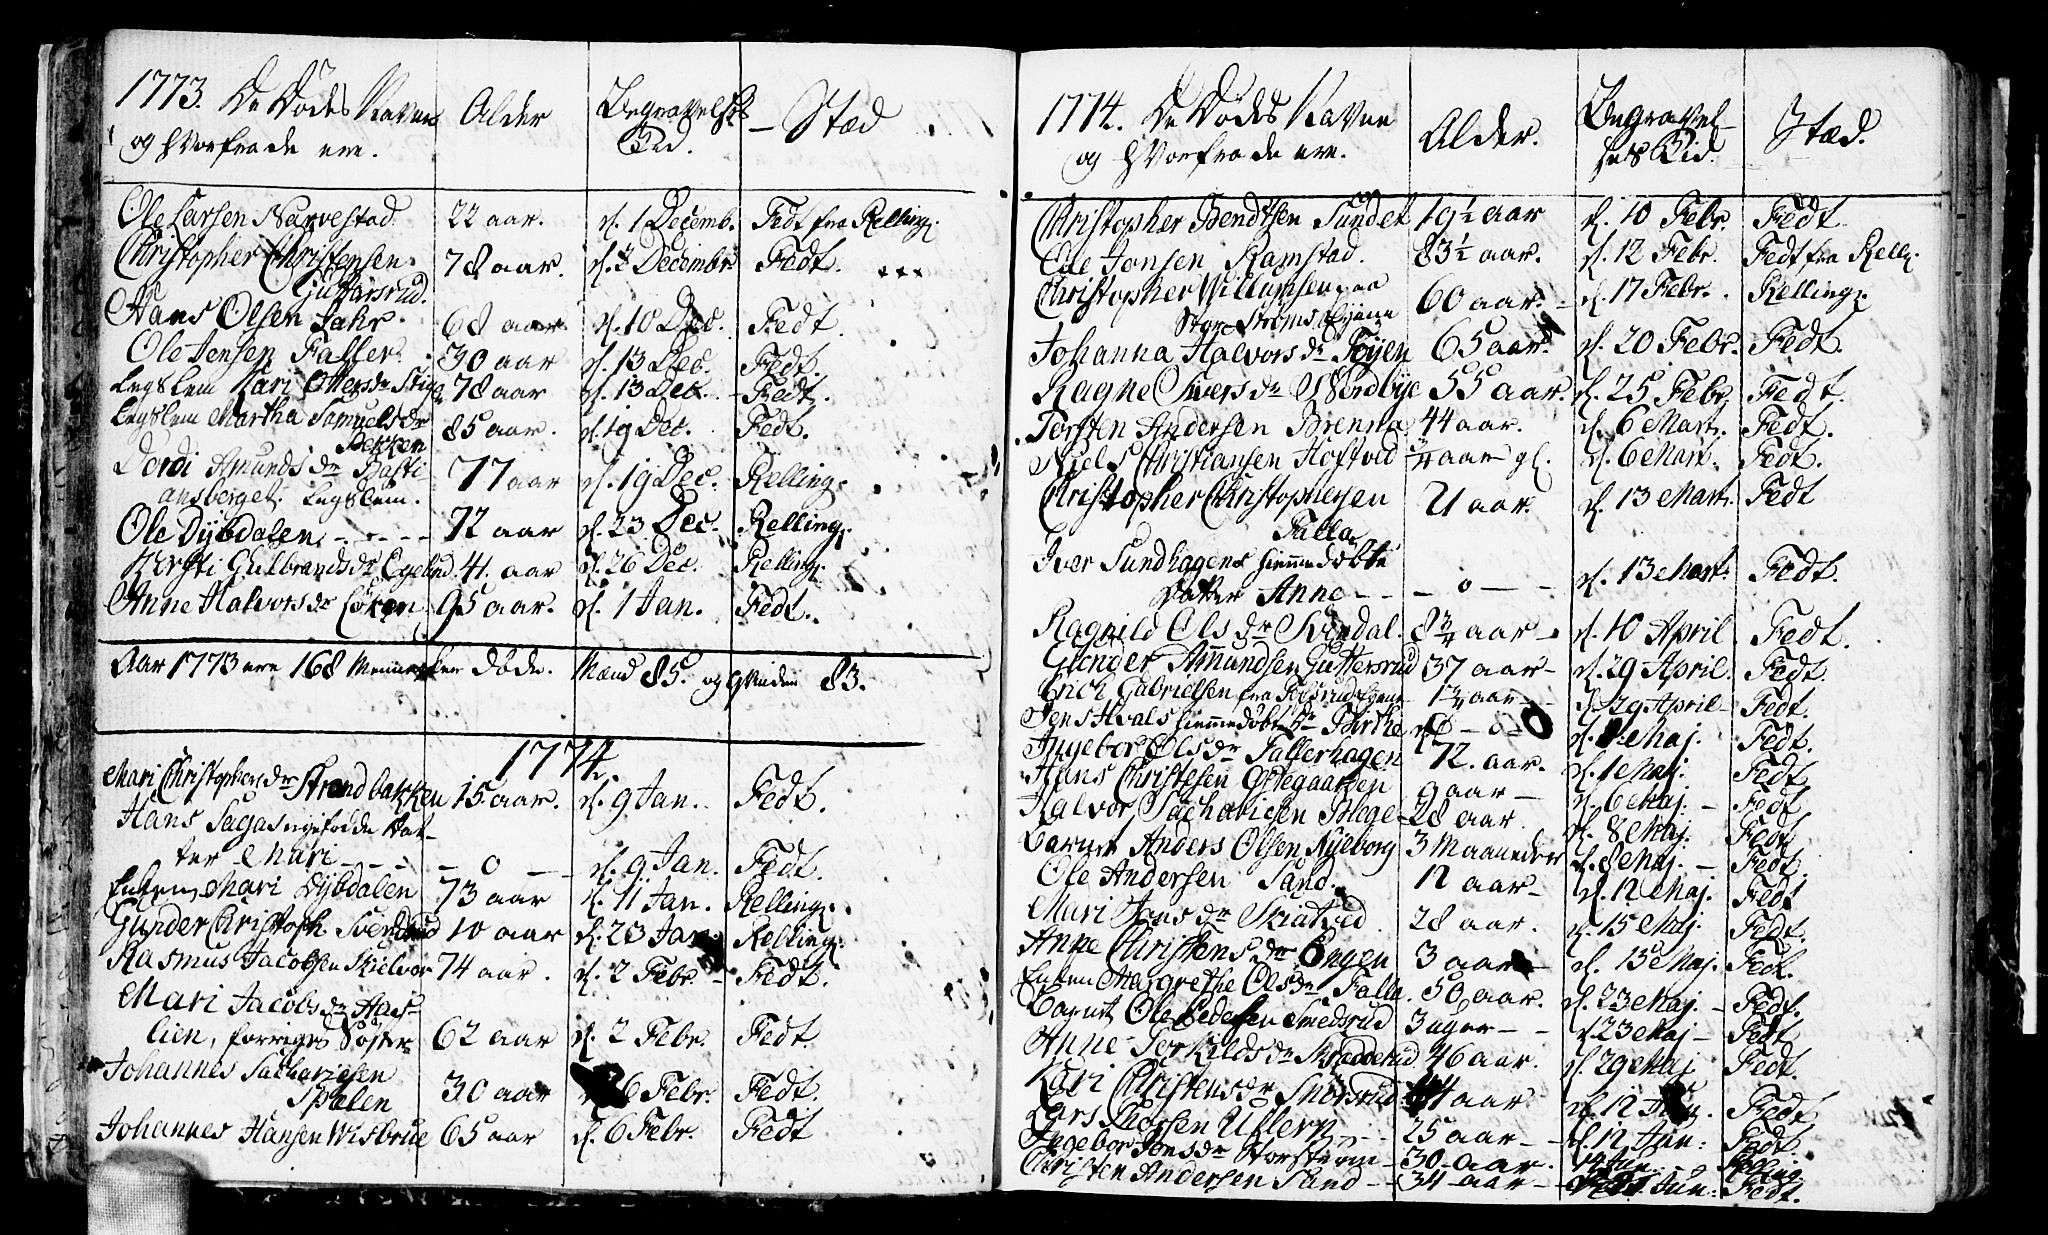 1773. De Dødes Navne Alder Begravelses Tid. Stæd
og hvorfra de ere.
Ole Larsen Narvestad 22 aar. d. 1 Decemb. Fedt fra Relling.
Christopher Christensen Guttarsrud. 78 aar. d. Decembr Fedt.
Hans Olsen Jahr. 68 aar. d. 10 Dec. Fedt.
Ole Jensen Faller. 30 aar d. 13 Dec. Fedt.
Legslem Kari Ottersdr 78 aar d. 13 Dec. Fedt.
Legslem Martha Samuelsdr Bekken 85 aar. d. 19 Dec. Fedt.
Dordi Amundsdr Basti-
ansberget. Legslem. 77 aar d. 19 Dec. Relling.
Ole Dybdalen 72 aar d. 23 Dec. Relling.
Kersti Gulbrandsdr Egelund. 41. aar d. 26 Dec. Relling.
Anne Halvorsdr Løken 95 aar. d. 1 Jan. Fedt.
Aar 1773 ere 168 Mennesker døde. Mænd 85. og Qvinder 83.
1774.
Mari Christophersdr Strandbakken 15 aar. d. 9 Jan. Fedt.
Hans Sagas nyefødde Dat-
ter Mari - 0 - d. 9 Jan. Fedt.
Enken Mari Dybdalen 73 aar d. 11 Jan. Relling.
Gunder Christoph. Svendsrud 10 aar d. 23 Jan. Relling.
Rasmus Jacobsen Skielver 74 aar. d. 2 Febr. Fedt.
Mari Jacobsdr Haes-
lien, forriges Søster 62 aar d. 2 Febr. Fedt.
Johannes Sachariesen
Spalen 30 aar 6 Febr. Fedt.
Johannes Hansen Wisbrue 65 aar d. 6 Febr. Fedt
1774. De Dødes Navne Alder. Begravel-
ses Tid. Stæd.
og hvorfra de ere.
Christopher Bendtsen Sundet 19½ aar d. 10 Febr. Fedt.
Ole Jonsen Ramstad. 83½ aar. d. 12 Febr. Fedt fra Rell.
Christopher Willumsen paa
Storstrøms Eyene 60 aar. d. 17 Febr. Relling.
Johanna Halvorsdr Töyen 65 aar. d. 20 Febr. Fedt.
Ragne Siversdr Nordbye 55 aar. d. 25 Febr. Fedt.
Torsten Andersen Brenna 44 aar. d. 6 Mart. Fedt.
Niels Christiansen Hoftved ¾ aar gl. d. 6 Mart. Fedt.
Christopher Christophersen
Falla 21 aar. d. 13 Mart. Fedt
Iver Sundhagens hiemmedøbte
Datter Anne - 0 - d. 13 Mart. Fedt.
Ragnild Olsdr Svindal. 8¾ aar d. 10 April Fedt.
Gunder Amundsen Guttersrud 37 aar d. 29 April. Fedt.
Erich Gabrielsen fra 1¾ aar d. 29 April Fedt.
Jens Hvals hiemmedøbt Dr Birthe - 0 - d. 1 Maj. Fedt.
Ingebor Olsdr Fallerhagen 72. aar. d. 1 Maj. Fedt
Hans Christesen Ødegaarden 9 aar d. 6 Maj. Fedt
Halvor Sachariesen Hege 28 aar. d. 8 Maj. Fedt
Barnet Anders Olsen Nyeborg 3 Maaneder d. 8 Maj. Fedt.
Ole Andersen Sand. 12 aar d. 12 Maj. Fedt
Mari Jensdr Skiatvid 28 aar. d. 15 Maj. Fedt.
Anne Christensdr Engen 3 aar d. 15 Maj. Fedt.
Enken Margrethe Olsdr Falla. 50 aar. d. 23 Maj. Fedt.
Barnet Ole Pedersen Smedsrud 3 uger d. 23 Maj Fedt
Anne Torkildsdr 46 aar. d. 29 Maj Fedt.
Kari Christensdr 44 aar d. 12 Jun. Fedt
Lars Thorsen Ullern 25 aar d. 12 Jun. Fedt.
Ingebor Jensdr Storstrøm 30 aar. Relling.
Christen Andersen Sand 34 aar Jun. Fedt.